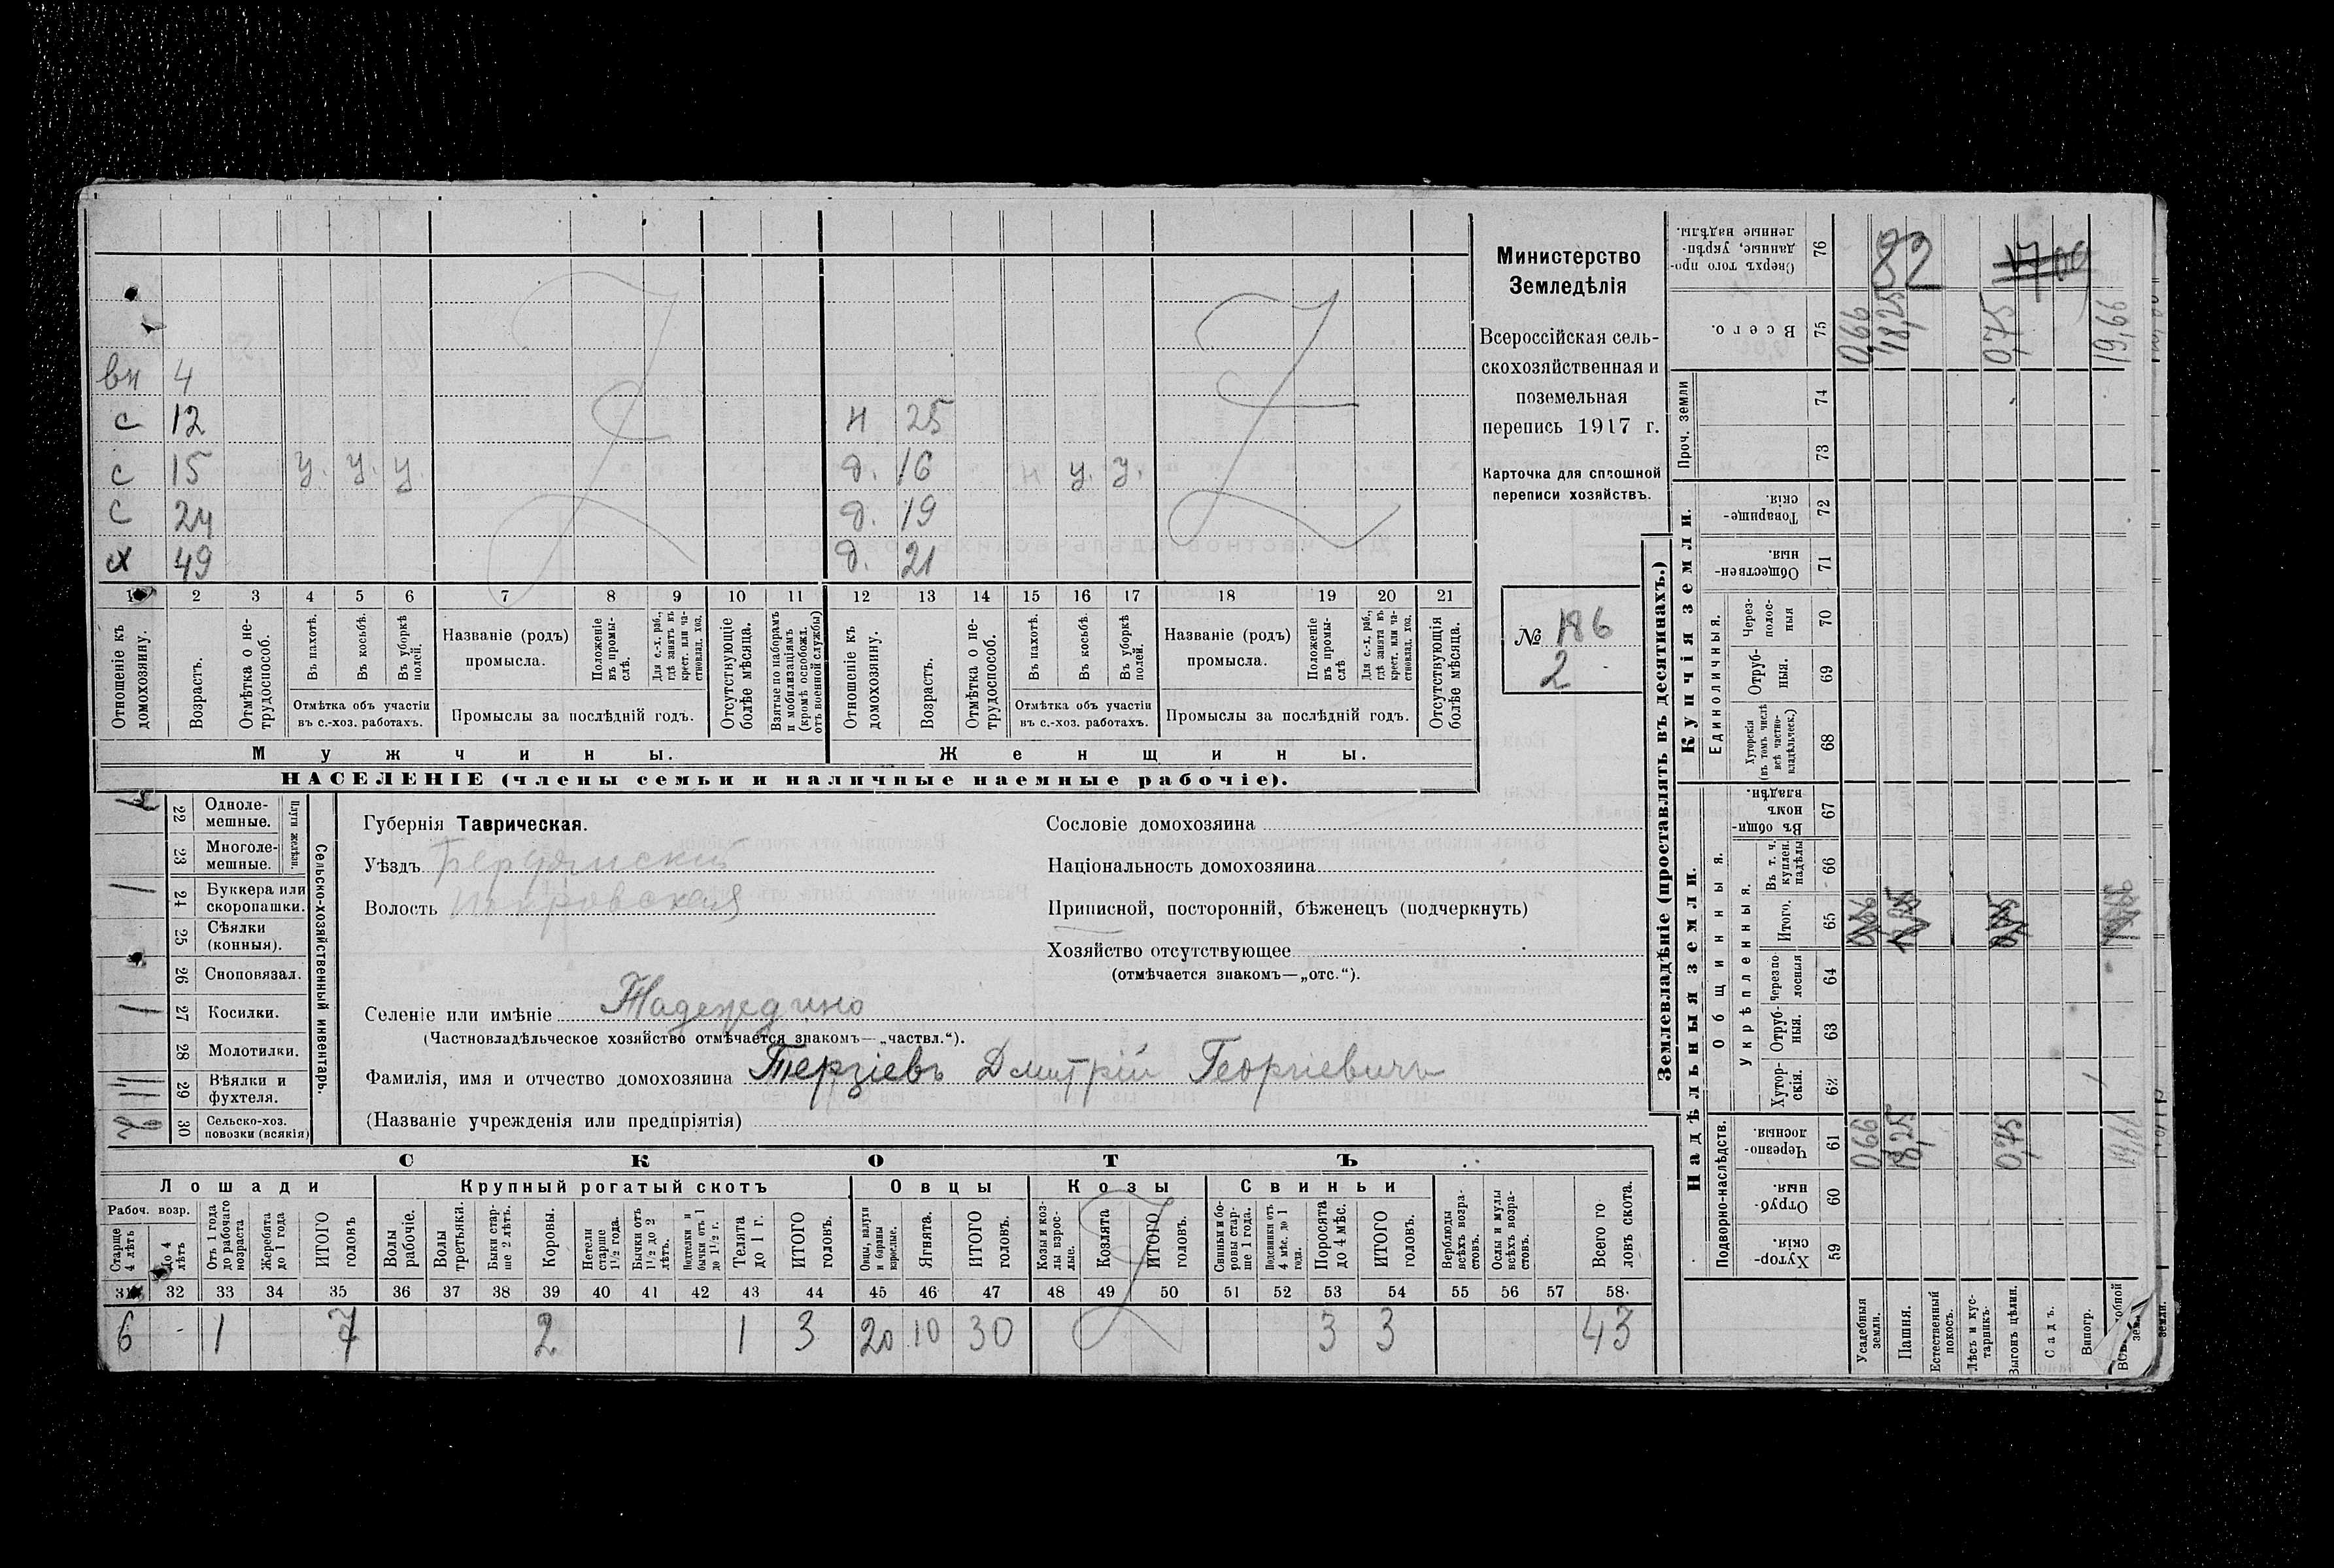 вн 4
с 12 н 25
с 15 у. у. у. д. 16 н у. у.
с 24 д. 19
х 49 д. 21
1 2 3 4 5 6 7 8 9 10 11 12 13 14 15 16 17 18 19 20 21
Отношеніе къ домохозяину.
Возрастъ.
Отмѣтка о не-трудоспособ.
Въ пахотѣ.
Въ косьбѣ.
Въ уборкѣ полей.
Отмѣтка объ участіи
въ с.-хоз. работахъ.
Названіе (родъ)
промысла.
Положеніе въ промы-слѣ.
Для с.-х. раб., гдѣ занятъ въ крест. или ча-стновлад. хоз.
Промыслы за послѣдній годъ.
Отсутствующіе болѣе мѣсяца.
Взятые по наборамъ и мобилизаціямъ (кромѣ освобожд. отъ военной службы)
Отношеніе къ домохозяину.
Возрастъ.
Отмѣтка о не-трудоспособ.
Въ пахотѣ.
Въ косьбѣ.
Въ уборкѣ полей.
Отмѣтка объ участіи
въ с.-хоз. работахъ.
Названіе (родъ)
промысла.
Положеніе въ промы-слѣ
Для с.-х. раб., гдѣ занята въ крест. или ча-стновлад. хоз.
Промыслы за послѣдній годъ.
Отсутствующія болѣе мѣсяца.
Мужчины.
Женщины.
НАСЕЛЕНІЕ (члены семьи и наличные наемные рабочіе).
Министерство
Земледѣлія
Всероссійская сель-
скохозяйственная и
поземельная
перепись 1917 г.
Карточка для сплошной
переписи хозяйствъ.
№ 186
2
22 Одноле-мешные.
23 Многоле-мешные.
Плуги желѣзн.
24 Буккера или скоропашки.
25 Сѣялки (конныя).
26 Сноповязал.
27 Косилки.
28 Молотилки.
29 Вѣялки и фухтеля.
30 Сельско-хоз. повозки (всякія)
Сельско-хозяйственный инвентарь.
Губернія Таврическая.
Уѣздъ Бердянский
Волость
Сословіе домохозяина
Національность домохозяина
Приписной, посторонній, бѣженецъ (подчеркнуть)
Хозяйство отсутствующее
(отмѣчается знакомъ—„отс.“).
Селеніе или имѣніе Надеждино
(Частновладѣльческое хозяйство отмѣчается знакомъ—„частвл.“).
Фамилія, имя и отчество домохозяина Терзіевъ Дмитрій Георгіевичъ
(Названіе учрежденія или предпріятія)
СКОТЪ
Лошади
Крупный рогатый скотъ
Овцы
Козы
Свиньи
Рабоч. возр.
Старше 4 лѣтъ
До 4 лѣтъ
Отъ 1 года до рабочаго возраста
Жеребята до 1 года
ИТОГО головъ
Волы рабочіе.
Волы третьяки.
Быки стар-ше 2 лѣтъ.
Коровы.
Нетели старше 1½ года.
Бычки отъ 1½ до 2 лѣтъ.
Подтелки и бычки отъ 1 до 1½ г.
Телята до 1 г.
ИТОГО головъ.
Овцы, валухи и бараны взрослые.
Ягнята.
ИТОГО головъ.
Козы и коз-лы взрос-лые.
Козлята
ИТОГО головъ.
Свиньи и бо-ровы стар-ше 1 года.
Подсвинки отъ 4 мѣс. до 1 года.
Поросята до 4 мѣс.
ИТОГО головъ.
Верблюды всѣхъ возра-стовъ.
Ослы и мулы всѣхъ возра-стовъ.
Всего го-ловъ скота.
31 32 33 34 35 36 37 38 39 40 41 42 43 44 45 46 47 48 49 50 51 52 53 54 55 56 57 58
6 - 1 7 2 1 3 20 10 30 3 3 43
Землевладѣніе (проставлять въ десятинахъ.)
Купчія земли.
Надѣльныя земли.
Сверхъ того про-данные, укрѣп-ленные надѣлы. 76 82
Всего. 75 0,66 18,25 0,75 19,66
Проч. земли 74 73
Товарище-скія. 72
Обществен-ныя. 71
Единоличныя.
Через-полос-ныя 70
Отруб-ныя. 69
Хуторскія (въ томъ числѣ всѣ частно-владѣльческ.) 68
Общинныя.
Въ общин-номъ владѣн. 67
укрѣпленныя.
Въ т. ч. куплен. надѣлы 66
Итого. 65
Черезпо-лосныя 64
Отруб-ныя. 63
Хутор-скія. 62
Подворно-наслѣдств.
Черезпо-лосныя. 61 0,66 18,25 0,75
Отруб-ныя. 60
Хутор-скія. 59
Усадебныя земли.
Пашня.
Естественный покосъ.
Лѣсъ и кус-тарникъ.
Выгонъ цѣлин.
Садъ.
Виногр.